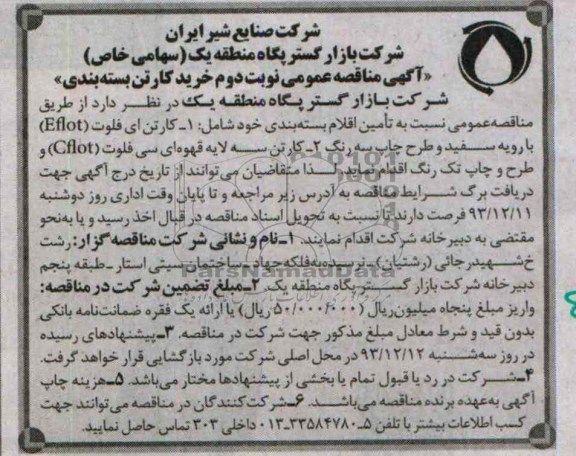 شرکت صنایع شیر ایران
شرکت بازار گستر پگاه منطقه یک (سهامی خاص)
«آگهی مناقصه عمومی نوبت دوم خرید کارتن بسته‌بندی»
شرکت بازار گستر پگاه منطقه یک در نظر دارد از طریق
مناقصه عمومی نسبت به تأمین اقلام بسته‌بندی خود شامل: ۱ـ کارتن ای فلوت (Eflot)
با رویه سفید و طرح چاپ سه رنگ ۲ـ کارتن سه لایه قهوه‌ای سی فلوت (Cflot) و
طرح و چاپ تک رنگ اقدام نماید. لذا متقاضیان می‌توانند از تاریخ درج آگهی جهت
دریافت برگ شرایط مناقصه به آدرس زیر مراجعه و تا پایان وقت اداری روز دوشنبه
۹۳/۱۲/۱۱ فرصت دارند تا نسبت به تحویل اسناد مناقصه در قبال اخذ رسید و یا به‌نحو
مقتضی به دبیرخانه شرکت اقدام نمایند. ۱ـ نام و نشانی شرکت مناقصه گزار: رشت
خ شهید رجائی (رشتیان) ـ نرسیده به فلکه جهاد ـ ساختمان سیتی استار ـ طبقه پنجم
دبیرخانه شرکت بازار گستر پگاه منطقه یک. ۲ـ مبلغ تضمین شرکت در مناقصه:
واریز مبلغ پنجاه میلیون ریال (۵۰/۰۰۰/۰۰۰ ریال) یا ارائه یک فقره ضمانت‌نامه بانکی
بدون قید و شرط معادل مبلغ مذکور جهت شرکت در مناقصه. ۳ـ پیشنهادهای رسیده
در روز سه‌شنبه ۹۳/۱۲/۱۲ در محل اصلی شرکت مورد بازگشایی قرار خواهد گرفت.
۴ـ شرکت در رد یا قبول تمام یا بخشی از پیشنهادها مختار می‌باشد. ۵ـ هزینه چاپ
آگهی به‌عهده برنده مناقصه می‌باشد. ۶ـ شرکت‌کنندگان در مناقصه می‌توانند جهت
کسب اطلاعات بیشتر با تلفن ۵ـ۳۳۵۸۴۷۸۰ـ۰۱۳ داخلی ۳۰۳ تماس حاصل نمایید.
ParsNamadData